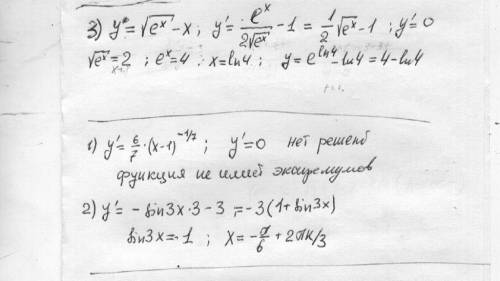 3) y = √eˣ - x; y' = eˣ/2√eˣ - 1 = 1/2 √eˣ - 1; y' = 0
√eˣ = 2; eˣ = 4; x = ln4; y = e^ln4 - ln4 = 4 - ln4
1) y' = 6/7 · (x-1)^-1/7; y' = 0 нет решений
функция не имеет экстремумов
2) y' = - sin3x · 3 - 3 = -3(1 + sin3x)
sin3x = -1; x = -π/6 + 2πk/3